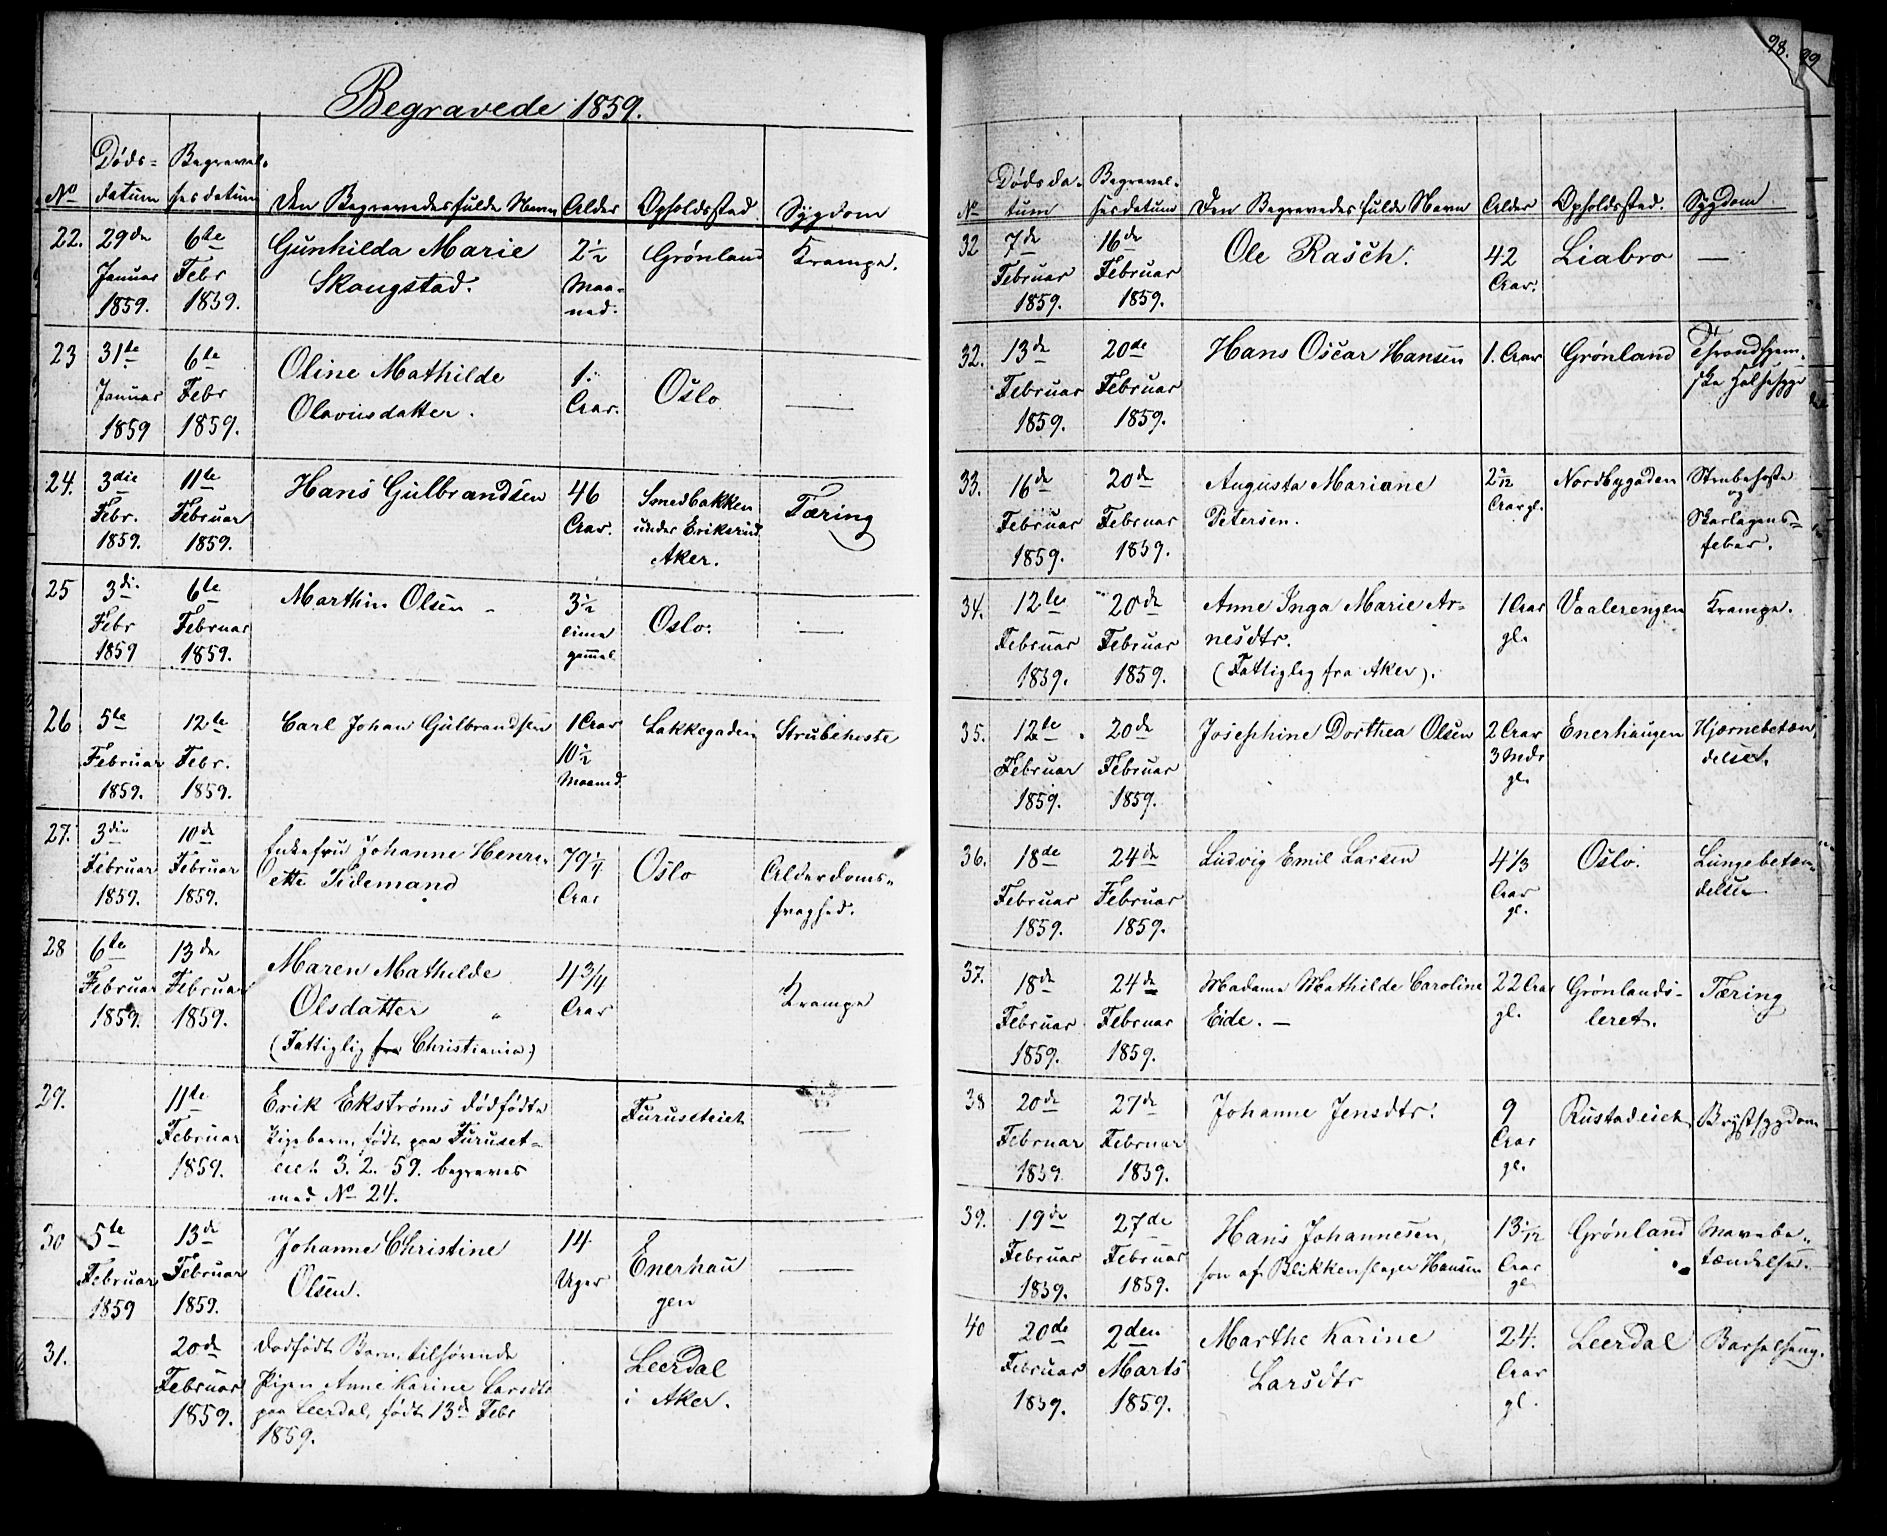 Begravede 1859.
No
Døds-
datum
Begravel-
sesdatum
Den Begravedes fulde Navn
Alder
Opholdssted
Sygdom
22.
29de
Januar
1859.
6te
Febr
1859.
Gunhilda Marie
Skougstad.
2½
Maa-
ned.
Grønland
Krampe.
23
31te
Januar
1859
6te
Febr
1859.
Oline Mathilde
Olavusdatter.
1.
Aar.
Oslo
—
24.
3die
Febr.
1859.
11te
Februar
1859.
Hans Gulbrandsen
46
Aar.
Smedbakken
under Eriksrud
Aker.
Tæring
25
3di.
Febr
1859
6te
Februar
1859.
Marthin Olsen
3½
time
gammel
Oslo.
—
26
5te
Februar
1859.
12te
Febr.
1859.
Carl Johan Gulbrandsen
1 Aar
10½
Maaned
Lakkegaden
Strubehoste
27.
3die
Februar
1859.
10de
Februar
1859.
Enkefru Johanne Henri-
ette Tidemand
79¼
Aar
Oslo
Alderdoms-
svaghed.
28
6te
Februar
1859.
13de
Februar
1859.
Maren Mathilde
Olsdatter
(Fattiglig fra Christiania)
4¾
Aar
Krampe
29.
11te
Februar
1859.
Erik Ekstrøms dødfødte
Pigebarn, født paa Furuset-
eiet 3. 2. 59. begraves
med No 24.
Furuseteiet
—
30
5te
Februar
1859
13de
Februar
1859.
Johanne Christine
Olsen.
14
Uger
Enerhau
gen
—
31.
20de
Februar
1859.
Dødfødt Barn tilhørende
Pigen Anne Karine Larsdtr
paa Leerdal, født 13de Febr
1859.
Leerdal
i Aker.
98.
99
No
Dødsda-
tum
Begravel-
sesdatum
Den Begravedes fulde Navn
Alder
Opholdssted.
Sygdom.
32
7de
Februar
1859.
16de
Februar
1859.
Ole Rasch.
42
Aar.
Liabro
—
32.
13de
Februar
1859.
20de
Februar
1859.
Hans Oscar Hansen
1. Aar
Grønland
Throndhjem-
ske Halssyge
33.
16de
Februar
1859.
20de
Februar
1859.
Augusta Mariane
Petersen.
Aar gl.
Nordbygaden
Strubehoste
og
Skarlagens-
feber.
34.
12te
Februar
1859.
20de
Februar
1859.
Anne Inga Marie Ar-
nesdtr.
(Fattiglig fra Aker).
1 Aar
gl.
Vaalerengen
Krampe.
35.
12te
Februar
1859.
20de
Februar
1859.
Josephine Dorthea Olsen
2 Aar
3 Mdr
gl.
Enerhaugen
Hjernebetæn-
delse.
36.
18de
Februar
1859.
24de
Februar
1859.
Ludvig Emil Larsen
4⅓
Aar
gl.
Oslo.
Lungebetæn-
delse
37.
18de
Februar
1859.
24de
Februar
1859.
Madame Mathilde Caroline
Eide. —
22 Aar
gl.
Grønlands-
leret.
Tæring
38
20de
Februar
1859
27de
Februar
1859.
Johanne Jensdtr.
9
Aar
gl.
Rustadeiet
Brystsygdom
39.
19de
Februar
1859.
27de
Februar
1859.
Hans Johannesen,
søn af Blikkenslager Hansen
13 1/12
Aar
gl
Grønland
Mavebe-
tændelse.
40
20de
Februar
1859.
2den
Marts
1859.
Marthe Karine
Larsdtr
24.
Aar
gl.
Leerdal
Barselseng.